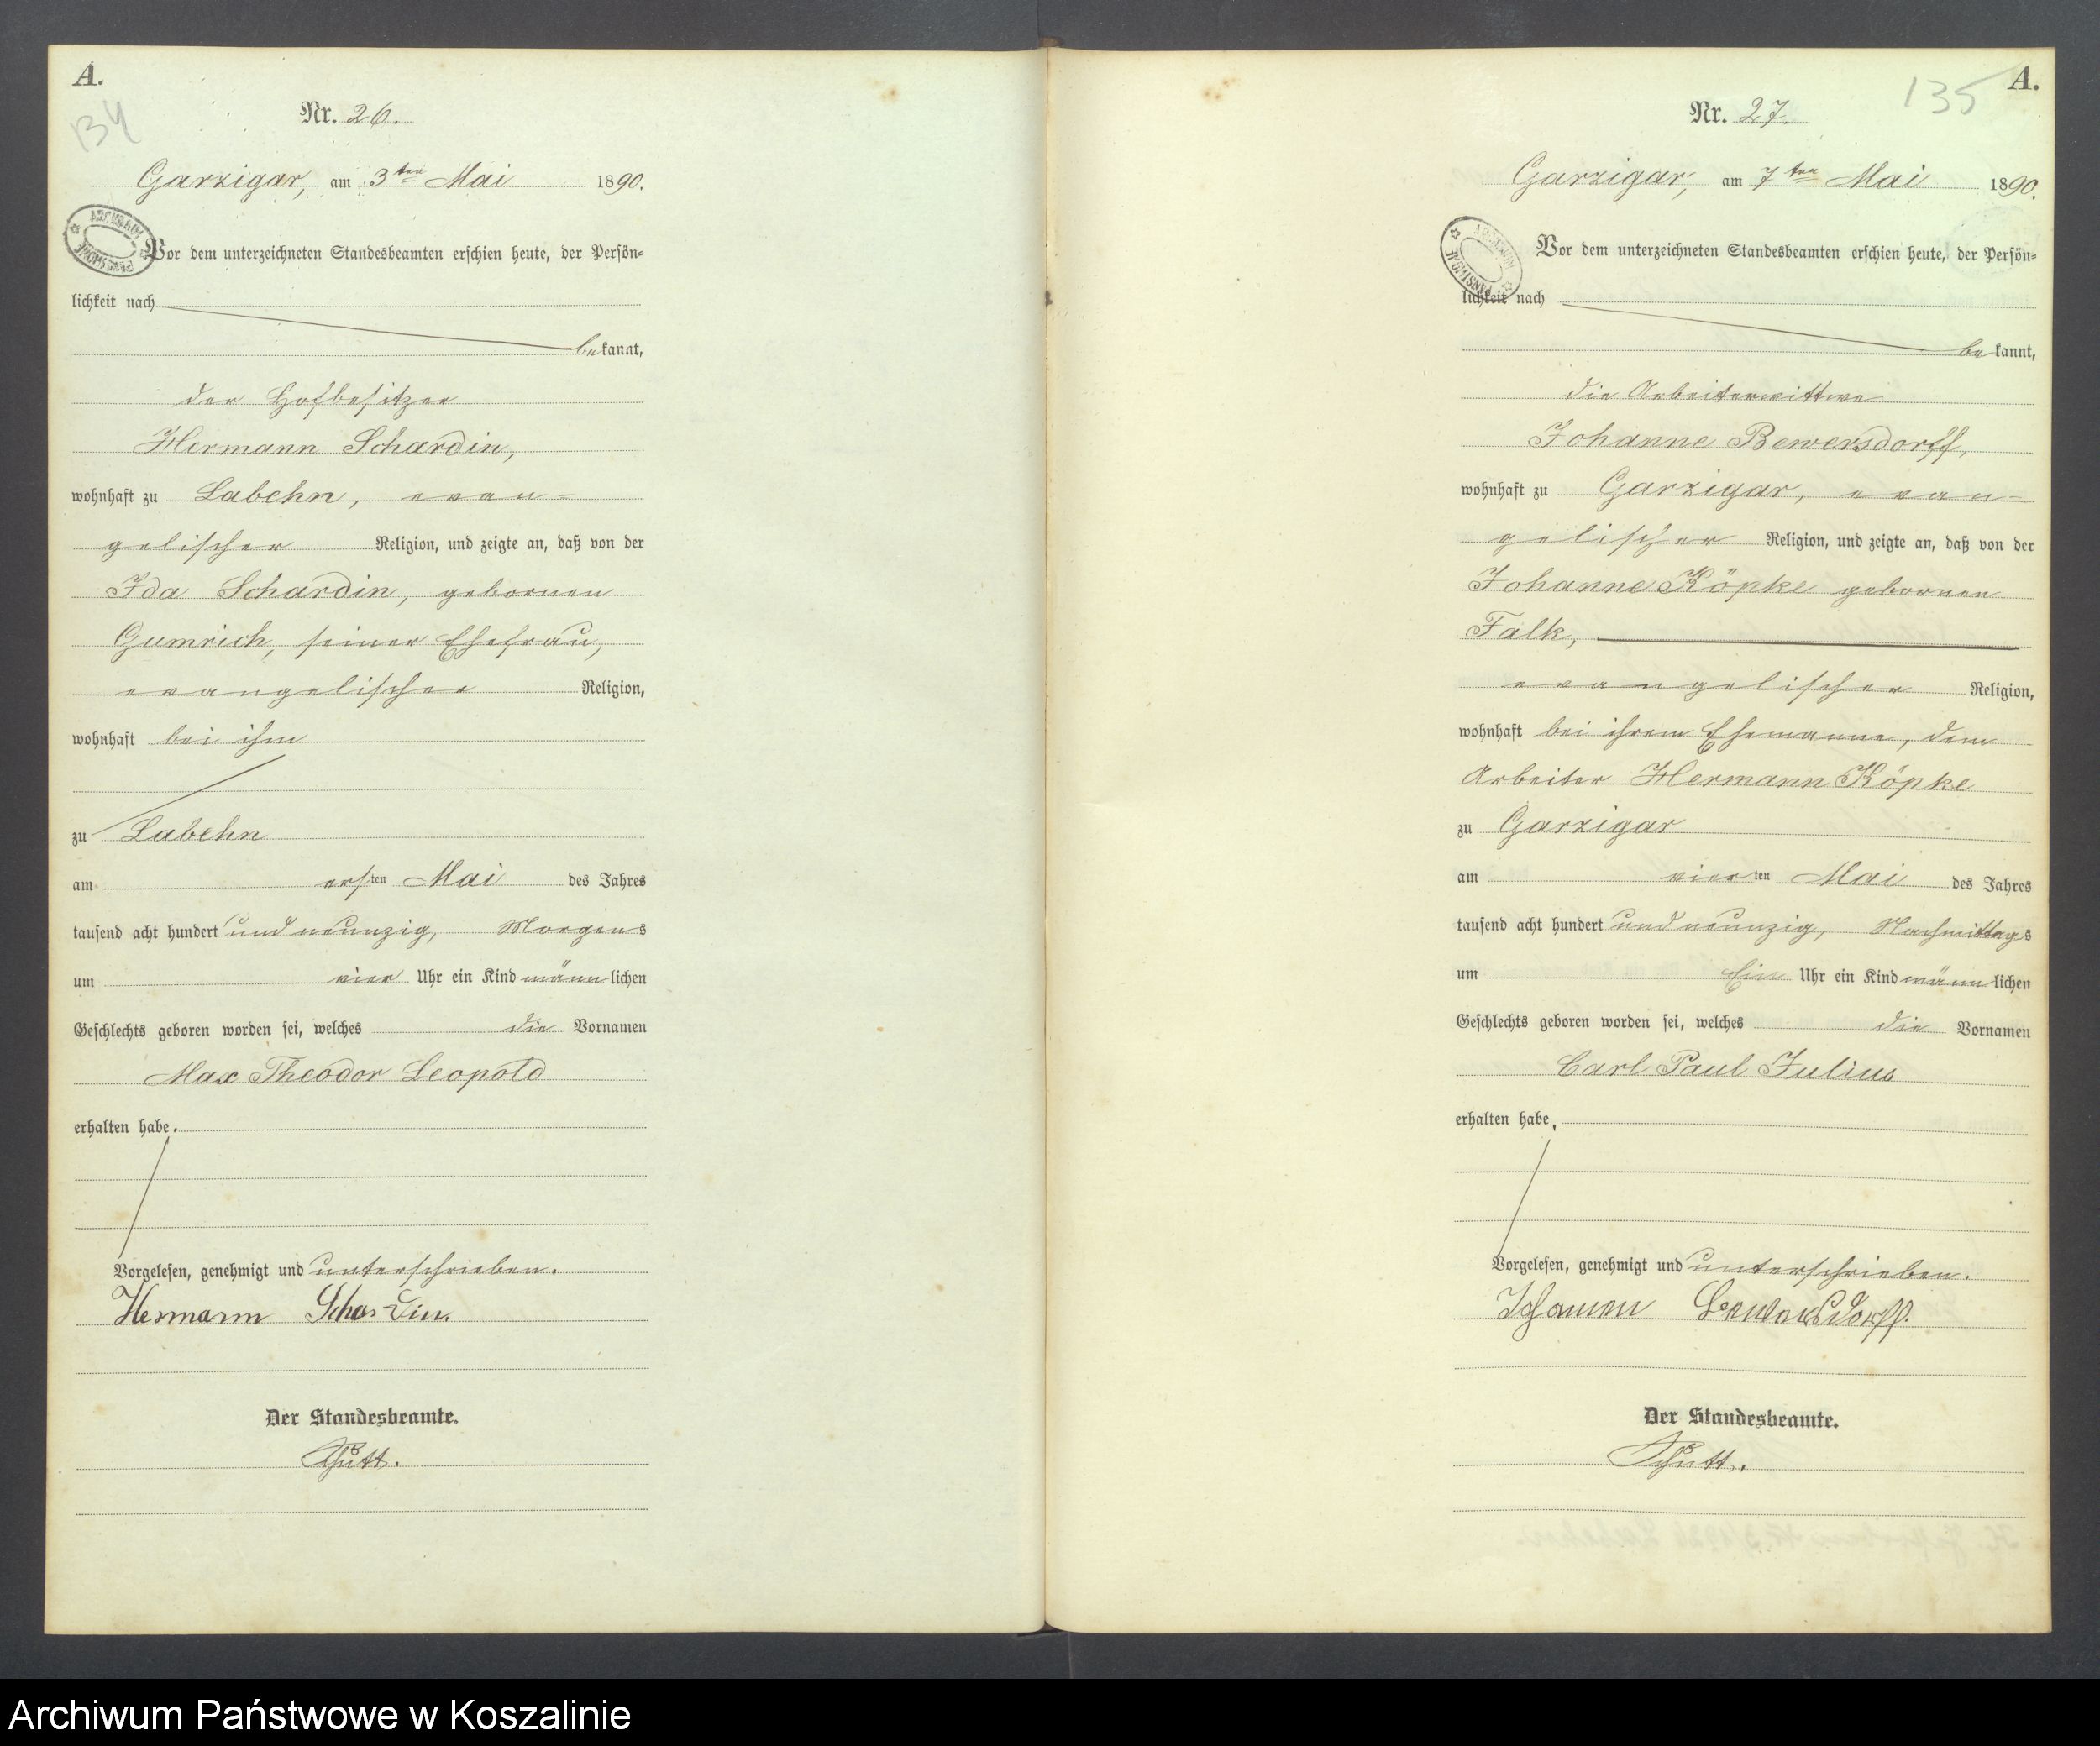 A.
134
Nr. 26.
Garzigar, am 3ten Mai 1890.
ARCHIWUM PAŃSTWOWE
Vor dem unterzeichneten Standesbeamten erschien heute, der Persön-
lichkeit nach
bekannt,
der Hofbesitzer
Hermann Schardin,
wohnhaft zu Labehn, evan-
gelischer Religion, und zeigte an, daß von der
Ida Schardin, gebornen
Gumrich, seiner Ehefrau,
evangelischer Religion,
wohnhaft bei ihm
zu Labehn
am ersten Mai des Jahres
tausend acht hundert und neunzig, Morgens
um vier Uhr ein Kind männlichen
Geschlechts geboren worden sei, welches die Vornamen
Max Theodor Leopold
erhalten habe.
Vorgelesen, genehmigt und unterschrieben.
Hermann Schardin.
Der Standesbeamte.
Schütt.
A.
135
Nr. 27.
Garzigar, am 7ten Mai 1890.
ARCHIWUM PAŃSTWOWE
Vor dem unterzeichneten Standesbeamten erschien heute, der Persön-
lichkeit nach
bekannt,
die Arbeiterwittwe
Johanne Bewersdorff,
wohnhaft zu Garzigar, evan-
gelischer Religion, und zeigte an, daß von der
Johanne Köpke gebornen
Falk,
evangelischer Religion,
wohnhaft bei ihrem Ehemanne, dem
Arbeiter Hermann Köpke
zu Garzigar
am vierten Mai des Jahres
tausend acht hundert und neunzig, Nachmittags
um Ein Uhr ein Kind männlichen
Geschlechts geboren worden sei, welches die Vornamen
Carl Paul Julius
erhalten habe.
Vorgelesen, genehmigt und unterschrieben.
Johanne Bewersdorff.
Der Standesbeamte.
Schütt.
Archiwum Państwowe w Koszalinie